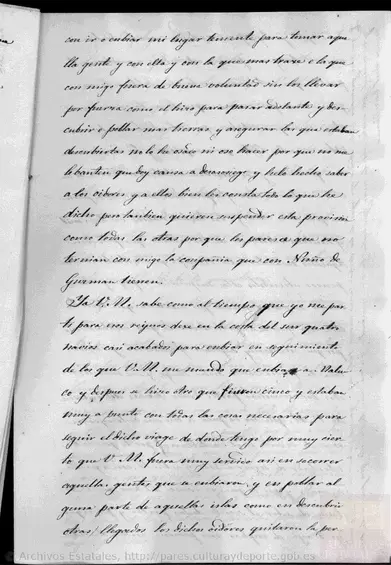 con ir o enbiar mi lugar teniente para tomar aque
lla gente y con ella y con la que mas traxe e la que
con migo fuera de buena voluntad sin los llevar
por fuerza como el hizo para pasar adelante y des
cubrir e poblar mas tierras y asegurar las que estaban
descubiertas no lo he osado ni oso hacer por que no me
lebanten que doy causa a desasosiego y helo hecho saber
a los oidores y a ellos bien les consta todo lo que he
dicho pero tanbien quieren suspender esta provision
como todas las otras por que les parece a que no
ternian con migo la compañia que con Niaño de
Guzman tienen.
Ya V. M. sabe como al tiempo que yo me par
ti para esos reignos dexe en la costa del sur quatro
navios casi acabados para enbiar en seguimiento
de los que V. M. me mando que enbiase a Malu
co y despues se hizo otro que fueron cinco y estaban
muy a punto con todas las cosas necesarias para
seguir el dicho viage de donde tengo por muy cier
to que V. M. fuera muy servido asi en socorrer
aquella gente que se enbiaron, y en poblar al
guna parte de aquellas islas como en descubrir
otras: llegados los dichos oidores quitaron la per
© Archivos Estatales, http://pares.culturaydeporte.gob.es